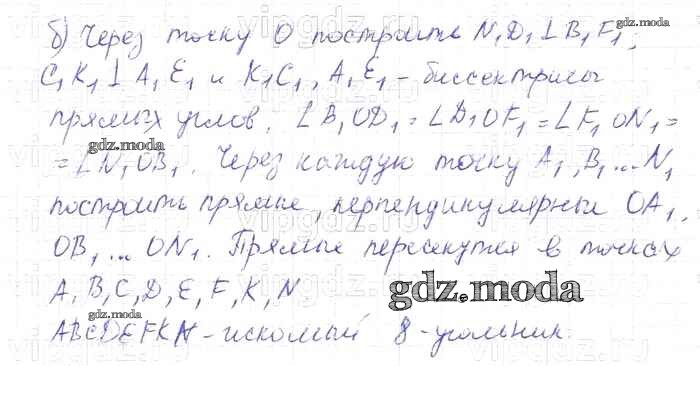 gdz.moda
б) Через точку O построить N₁D₁ ⊥ B₁F₁;
C₁K₁ ⊥ A₁E₁ и K₁C₁, A₁E₁ - биссектрисы
прямых углов, ∠B₁OD₁ = ∠D₁OF₁ = ∠F₁ON₁ =
gdz.moda
= ∠N₁OB₁. Через каждую точку A₁, B₁ ... N₁
построить прямые, перпендикулярный OA₁,
OB₁ ... ON₁. Прямые пересекутся в точках
A, B, C, D, E, F, K, N
gdz.moda
gdz.moda
ABCDEFKN - искомый 8-угольник.